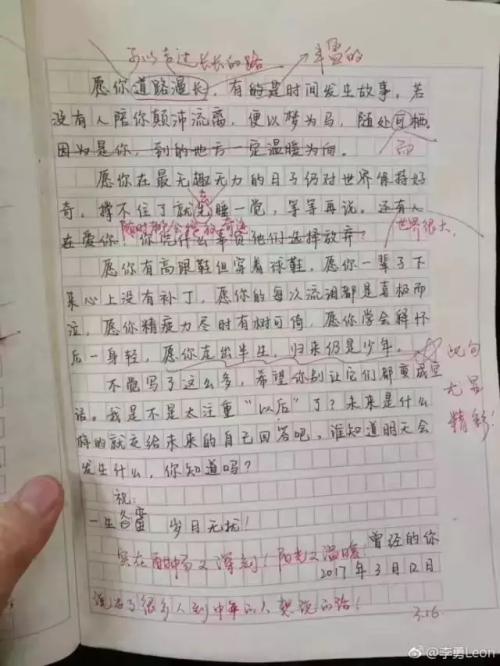 可以走过长长的路
丰富的
愿你道路漫长，有的是时间发生故事。若
没有人陪你颠沛流离，便以梦为马，随处可栖。
而
因为是你，到的地方一定温暖为向。
愿你在最无趣无力的日子仍对世界保持好
奇，撑不住了就先睡一觉，等等再说。还有人
在爱你！你凭什么辜负他们选择放弃？
世界很大
愿你有高跟鞋但穿着球鞋，愿你一辈子下
来心上没有补丁，愿你的每次流泪都是喜极而
泣，愿你精疲力尽时有树可倚，愿你学会释怀
后一身轻，愿你走出半生，归来仍是少年。
此句
尤显
精彩！
不觉写了这么多，希望你别让它们都变成空
话。我是不是太注重“以后”了？未来是什么
样的就交给未来的自己回答吧，谁知道明天会
发生什么，你知道吗？
祝：
一生
岁月无扰！
曾经的你
实在 又深刻！阳光又温暖
2017年3月12日
说出了很多人到中年的人想说的话！
3.16
@李勇Leon